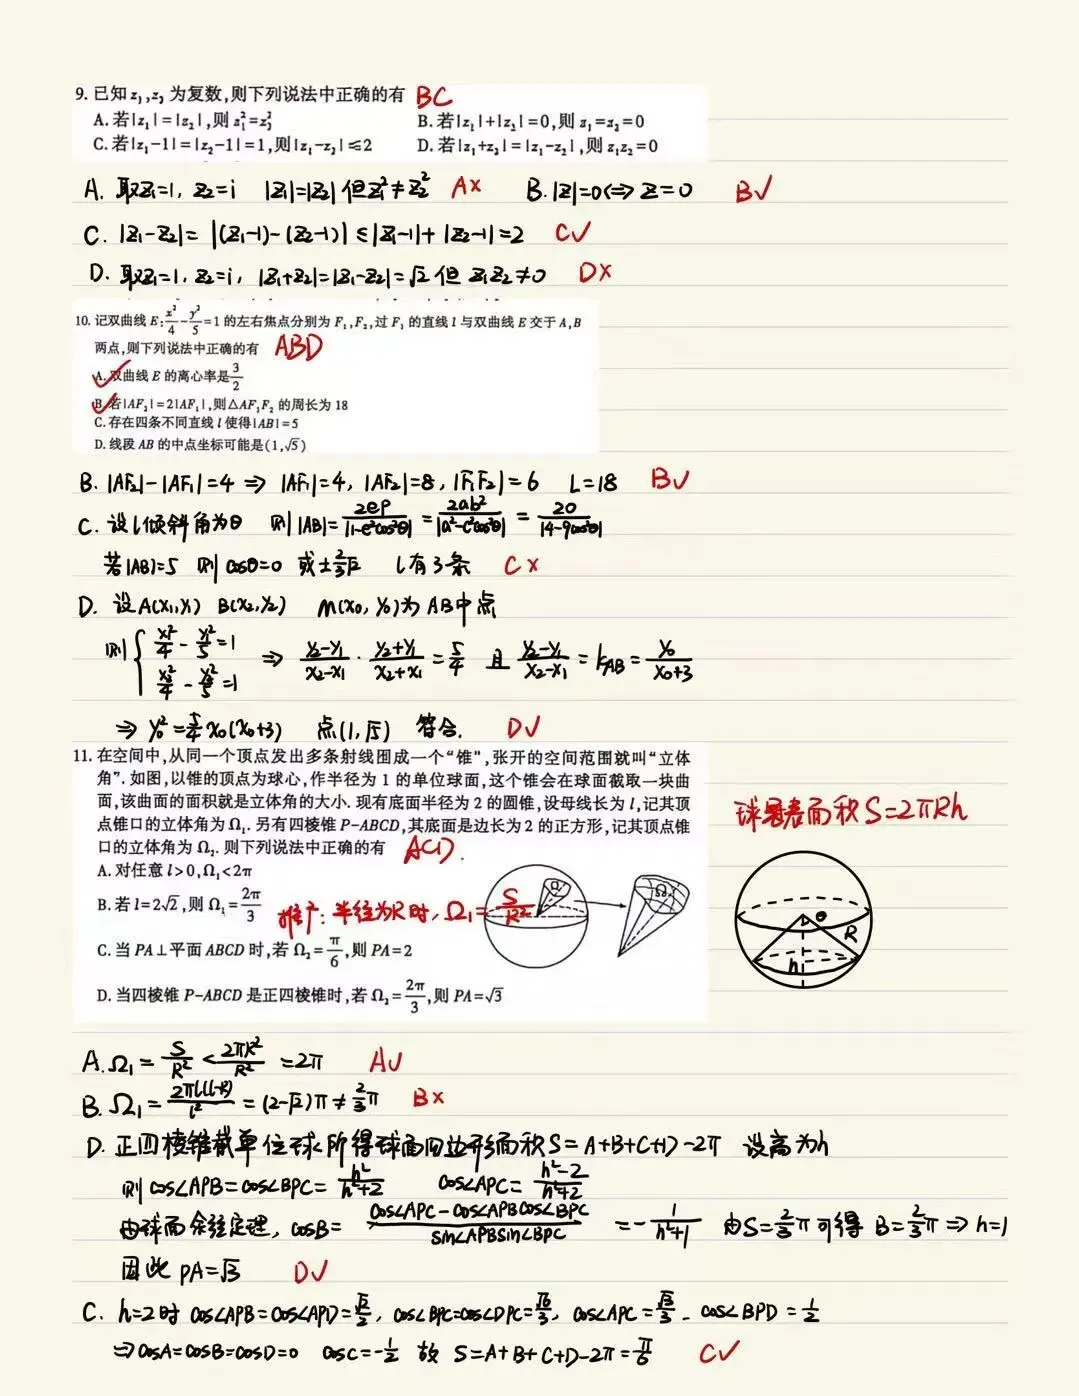 9. 已知 z₁,z₂ 为复数,则下列说法中正确的有 BC
A. 若|z₁|=|z₂|,则 z₁²=z₂² B. 若|z₁|+|z₂|=0,则 z₁=z₂=0
C. 若|z₁-1|=|z₂-1|=1,则|z₁-z₂|≤2 D. 若|z₁+z₂|=|z₁-z₂|,则 z₁z₂=0
A. 取z₁=1, z₂=i |z₁|=|z₂| 但z₁²≠z₂² A× B. |z|=0⇔z=0 B✓
C. |z₁-z₂|=|(z₁-1)-(z₂-1)|≤|z₁-1|+|z₂-1|=2 C✓
D. 取z₁=1, z₂=i, |z₁+z₂|=|z₁-z₂|=√2 但 z₁z₂≠0 D×
10. 记双曲线 E:x²/4-y²/5=1 的左右焦点分别为 F₁,F₂,过 F₁ 的直线 l 与双曲线 E 交于 A,B
两点,则下列说法中正确的有 ABD
A. 双曲线 E 的离心率是3/2
B. 若|AF₂|=2|AF₁|,则△AF₁F₂ 的周长为 18
C. 存在四条不同直线 l 使得|AB|=5
D. 线段 AB 的中点坐标可能是(1,√5)
B. |AF₂|-|AF₁|=4 ⇒ |AF₁|=4, |AF₂|=8, |F₁F₂|=6 L=18 B✓
C. 设l倾斜角为θ 则|AB|=2ep/|1-e²cos²θ|=2ab²/|a²-c²cos²θ|=20/|4-9cos²θ|
若|AB|=5 则 cosθ=0 或±2/3√2 l有3条 C×
D. 设A(x₁,y₁) B(x₂,y₂) M(x₀,y₀)为AB中点
则{x₁²/4-y₁²/5=1
x₂²/4-y₂²/5=1 ⇒ (y₂-y₁)/(x₂-x₁)·(y₂+y₁)/(x₂+x₁)=5/4 且 (y₂-y₁)/(x₂-x₁)=k_AB=y₀/(x₀+3)
⇒ y₀²=5/4x₀(x₀+3) 点(1,√5) 符合. D✓
11. 在空间中,从同一个顶点发出多条射线围成一个“锥”,张开的空间范围就叫“立体
角”. 如图,以锥的顶点为球心,作半径为 1 的单位球面,这个锥会在球面截取一块曲
面,该曲面的面积就是立体角的大小. 现有底面半径为 2 的圆锥,设母线长为 l,记其顶
点锥口的立体角为 Ω₁. 另有四棱锥 P-ABCD,其底面是边长为 2 的正方形,记其顶点锥
口的立体角为 Ω₂. 则下列说法中正确的有 ACD.
球冠表面积S=2πRh
A. 对任意 l>0,Ω₁<2π
B. 若 l=2√2,则 Ω₁=2π/3
推广: 半径为R时, Ω₁=S/R²
C. 当 PA⊥平面 ABCD 时,若 Ω₂=π/6,则 PA=2
D. 当四棱锥 P-ABCD 是正四棱锥时,若 Ω₂=2π/3,则 PA=√3
Ω Ω
O R h
A. Ω₁=S/R²<2πR²/R²=2π A✓
B. Ω₁=2πl(l-h)/l²=(2-√2)π≠2/3π B×
D. 正四棱锥截单位球所得球面四边形面积S=A+B+C+D-2π 设高为h
则 cos∠APB=cos∠BPC=h²/(h²+2) cos∠APC=(h²-2)/(h²+2)
由球面余弦定理, cosB=(cos∠APC-cos∠APBcos∠BPC)/(sin∠APBsin∠BPC)=-1/(h²+1) 由S=2/3π可得 B=2/3π ⇒ h=1
因此 PA=√3 D✓
C. h=2时 cos∠APB=cos∠APD=√2/2, cos∠BPC=cos∠DPC=√6/3, cos∠APC=√3/3, cos∠BPD=1/2
⇒cosA=cosB=cosD=0 cosC=-1/2 故 S=A+B+C+D-2π=π/6 C✓